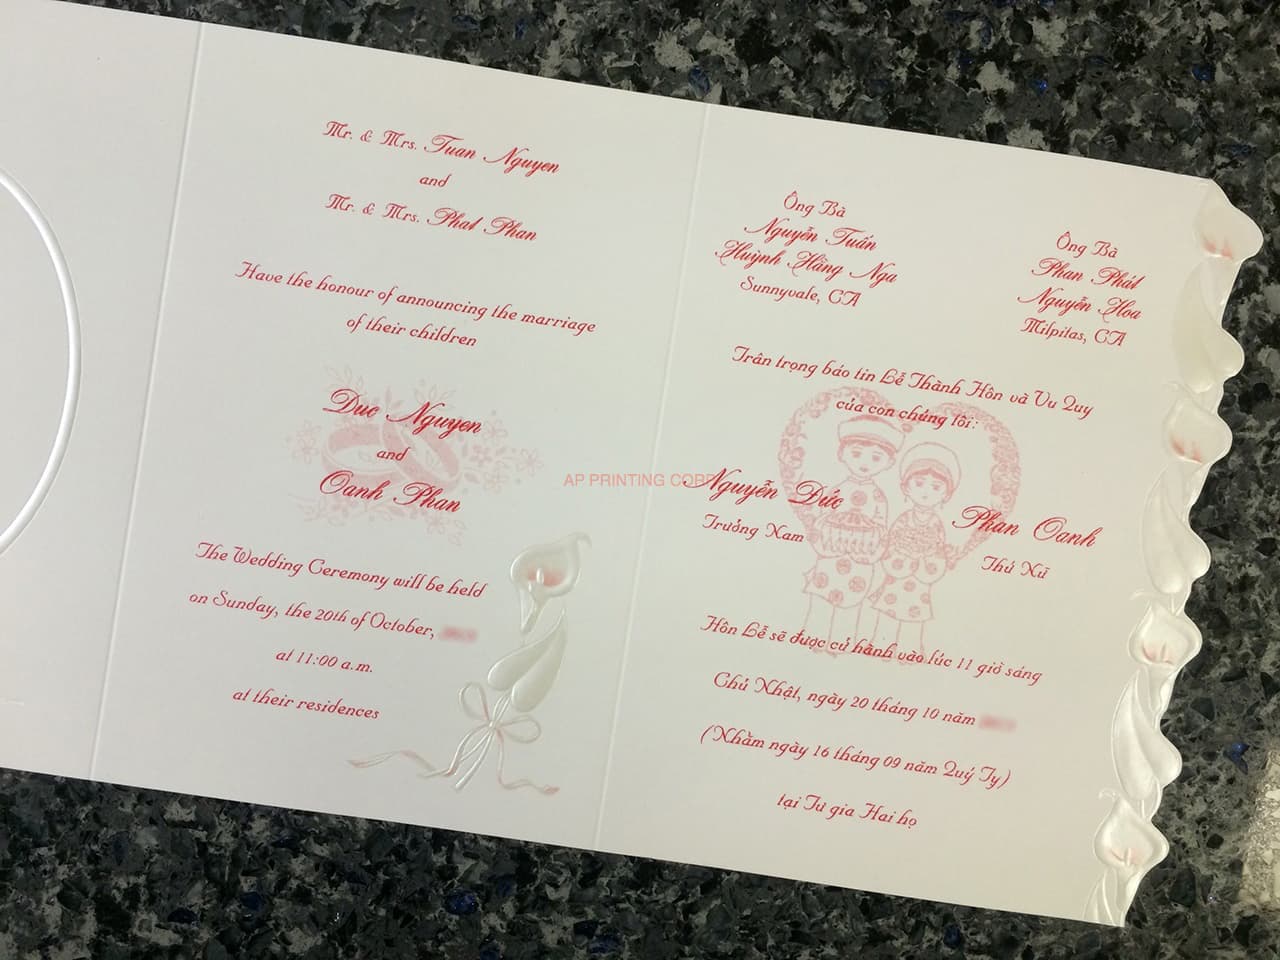 Mr. & Mrs. Tuan Nguyen
and
Mr. & Mrs. Phat Phan
Have the honour of announcing the marriage
of their children
Duc Nguyen
and
Oanh Phan
The Wedding Ceremony will be held
on Sunday, the 20th of October,
at 11:00 a.m.
at their residences
AP PRINTING CORP
Ông Bà
Nguyễn Tuấn
Huỳnh Hằng Nga
Sunnyvale, CA
Ông Bà
Phan Phát
Nguyễn Hoa
Milpitas, CA
Trân trọng báo tin Lễ Thành Hôn và Vu Quy
của con chúng tôi:
Nguyễn Đức
Trưởng Nam
Phan Oanh
Thứ Nữ
Hôn Lễ sẽ được cử hành vào lúc 11 giờ sáng
Chủ Nhật, ngày 20 tháng 10 năm
(Nhằm ngày 16 tháng 09 năm Quý Tỵ)
tại Tư gia Hai họ